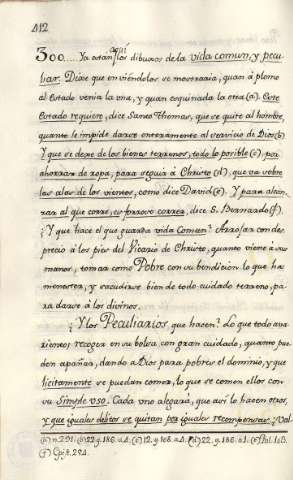 412
300... Ya estan aquí los dibuxos de la vida comun, y pecu-
liar. Dixe que en viéndolos se mostraria, quan á plomo
al Estado venia la una, y quan esquinada la otra (a). Este
Estado requiere, dice Santo Thomas, que se quite al hombre,
quanto le impide darse enteramente al servicio de Dios (b)
Y que se dexe de los bienes terrenos, todo lo posible (c), por
ahorrar de ropa, para seguir á Christo (d), que va sobre
las alas de los vientos, como dice David (e). Y para alcan-
zar al que corre, es forzoso correr, dice S. Bernardo (f).
¿Y que hace el que guarda vida Comun? Arrojar con des-
precio á los pies del Vicario de Christo, quanto viene á sus
manos, tomar como Pobre con su bendicion lo que ha
menester, y sacudirse bien de todo cuidado terreno, pa-
ra darse á los divinos.
¿Y los Peculiarios que hacen? Lo que todo ava-
riento; recoger en su bolsa con gran cuidado, quanto pue-
den apañar, dando a Dios para pobres el dominio, y que
licitamente se puedan comer, lo que se comen ellos con
su Simple uso. Cada uno alegará, que así lo hacen otros,
y que iguales delitos se quitan por iguales recompensas; Val-
(a) n. 291. (b) 22 q. 186. a 4. (c) 12. q. 108. a 4. (d) 22. q. 186. a 1. (e) Psal. 103.
(f) Ep. 254.